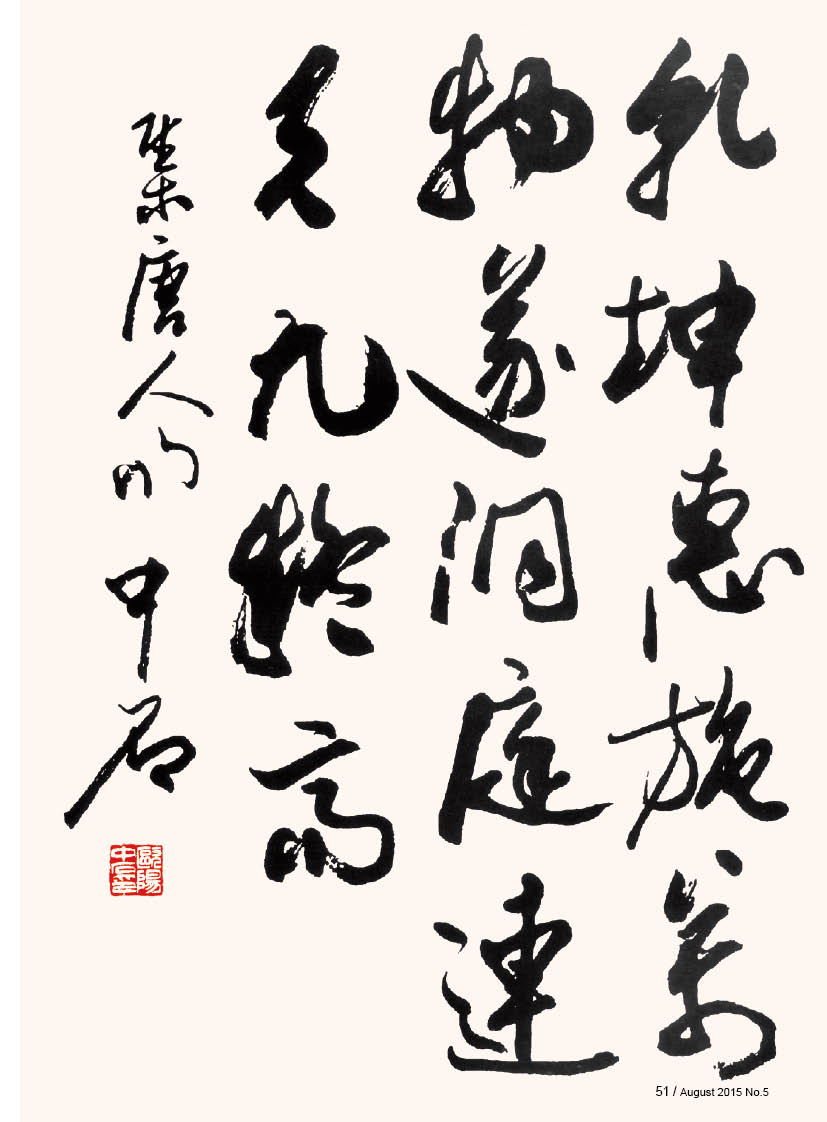 乾坤惠施萬
物遂洞庭連
天九疑高
集唐人句 中石
歐陽
51 / August 2015 No.5